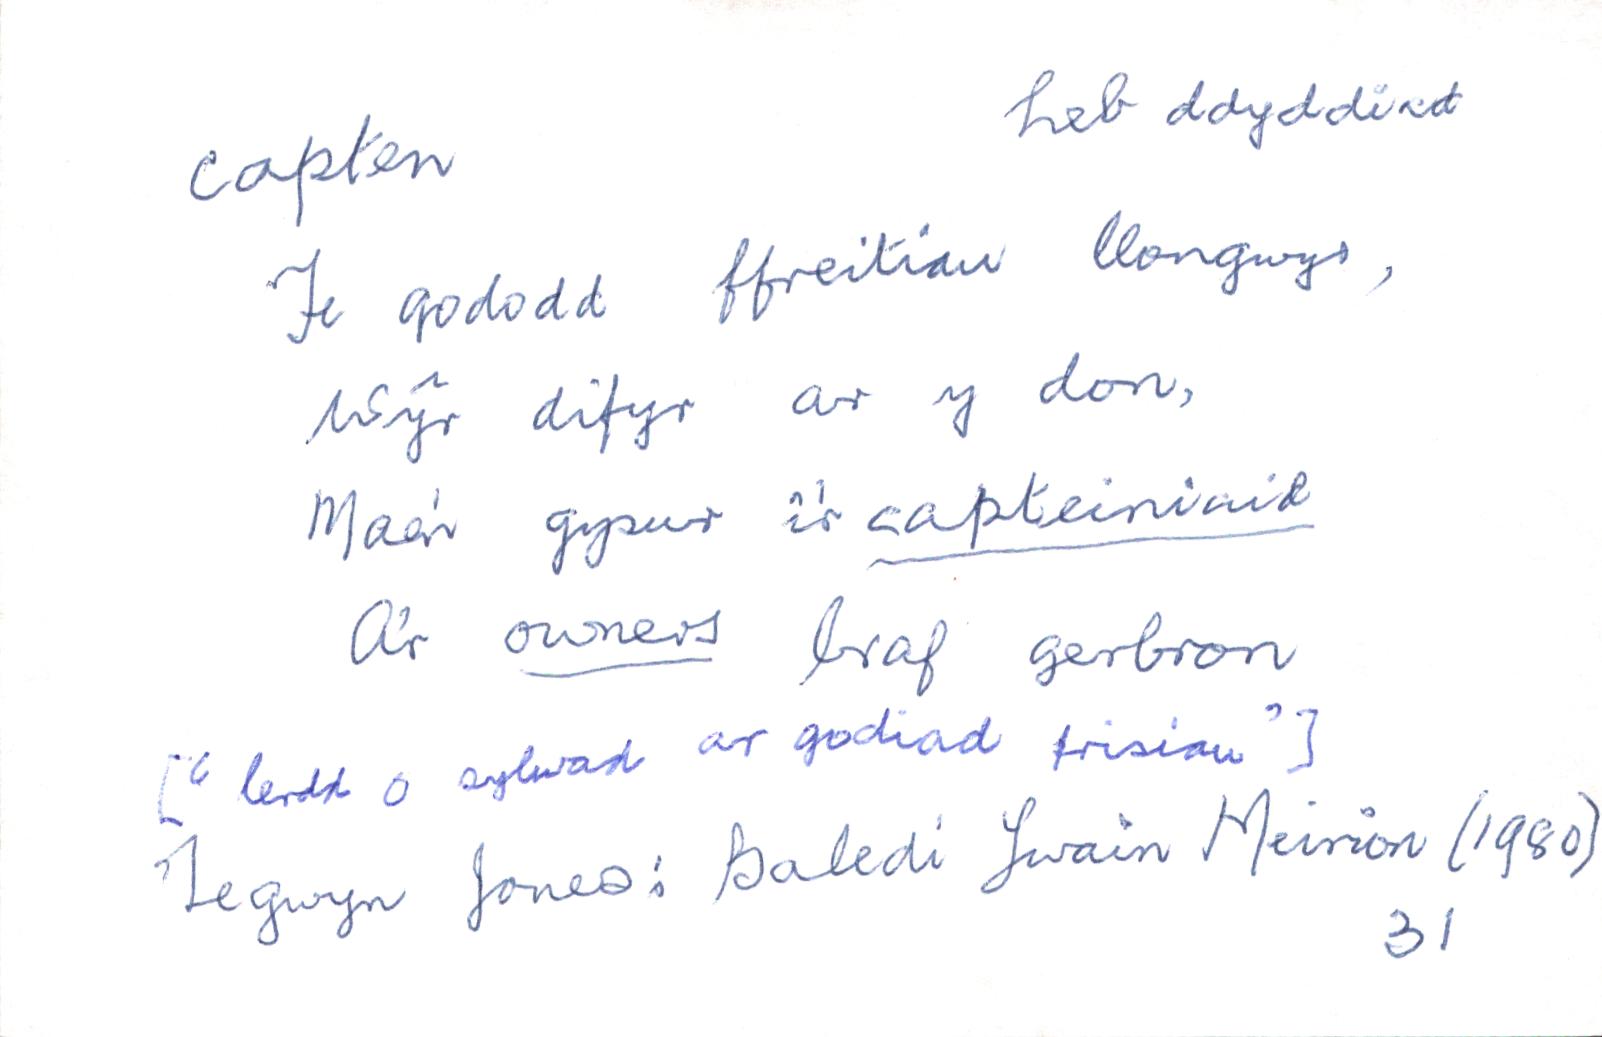 heb ddyddiad
capten
Fe gododd ffreitiau llongwys,
Wŷr difyr ar y don,
Mae'n gysur i'r capteiniaid
A'r owners braf gerbron
["Cerdd o sylwad ar godiad prisiau"]
Tegwyn Jones: Baledi Ywain Meirion (1980)
31